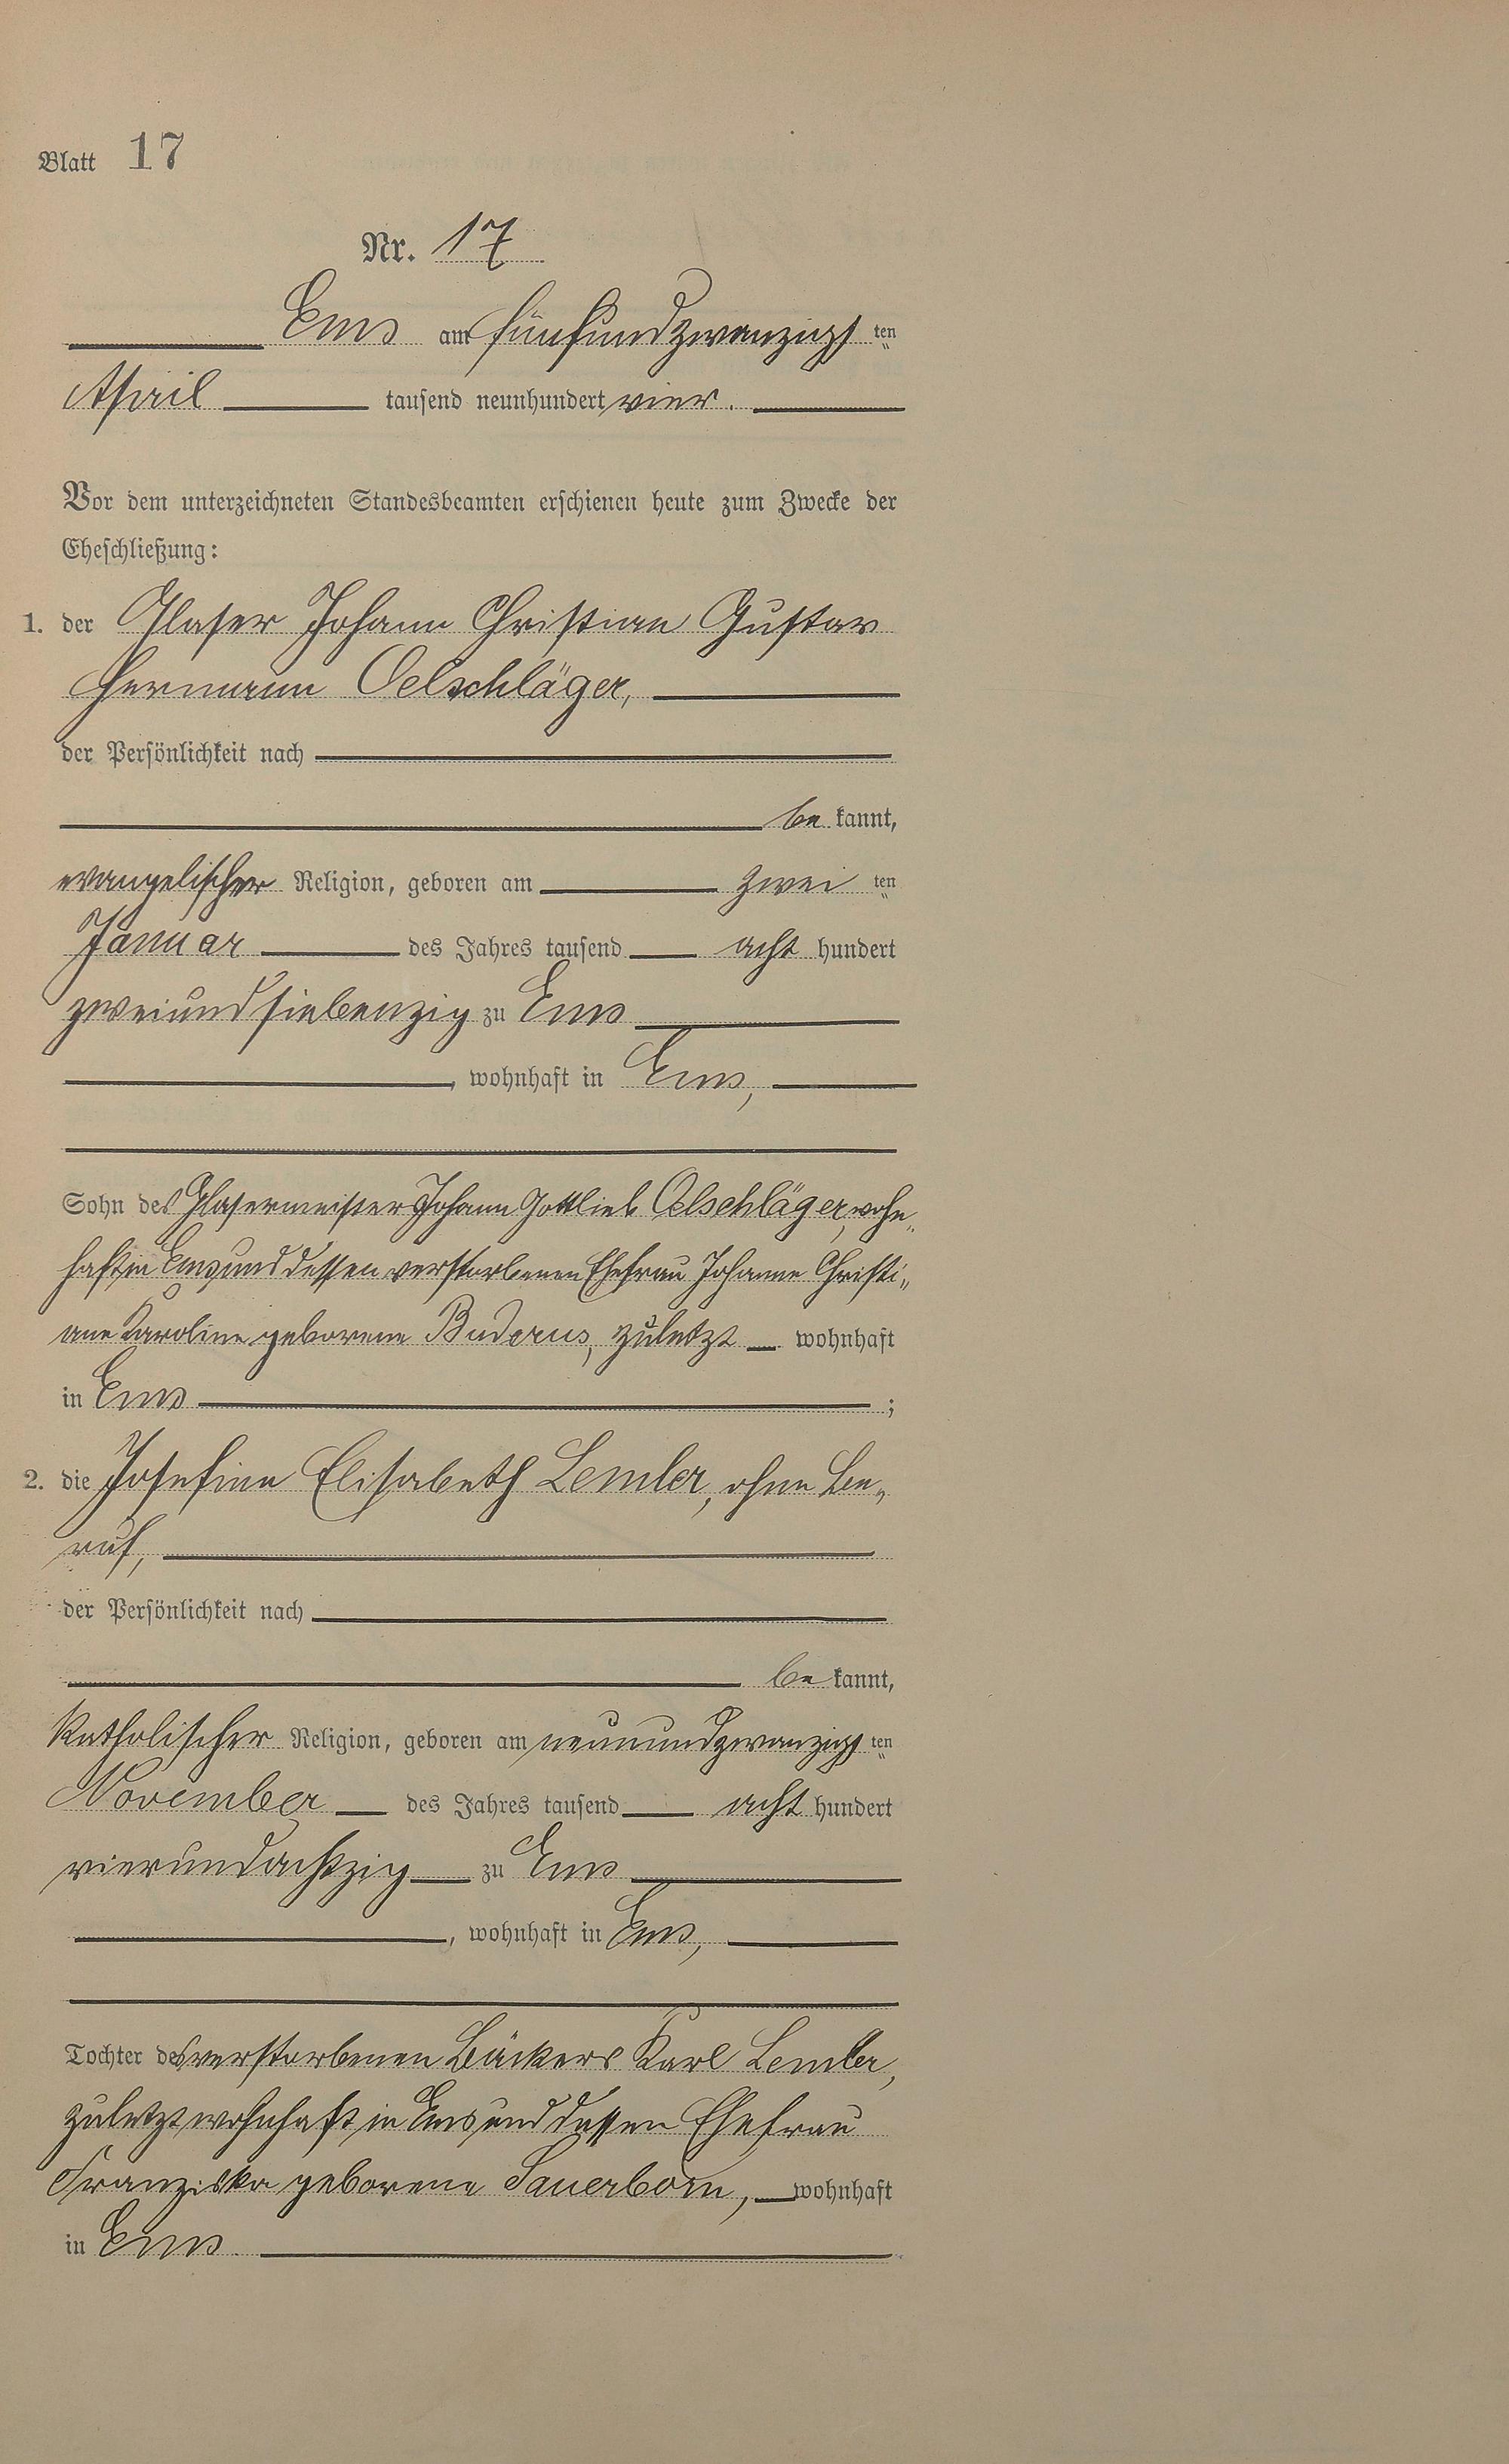 Blatt 17
Nr. 17
Ems am fünfundzwanzigsten
April tausend neunhundert vier.
Vor dem unterzeichneten Standesbeamten erschienen heute zum Zwecke der
Eheschließung:
1. der Glaser Johann Christian Gustav
Hermann Oelschläger,
der Persönlichkeit nach
bekannt,
evangelischer Religion, geboren am zweiten
Januar des Jahres tausend acht hundert
zweiundsiebenzig zu Ems
, wohnhaft in Ems,
Sohn des Glasermeisters Johann Gottlieb Oelschläger, wohn„
haft in Ems und dessen verstorbenen Ehefrau Johanne Christi„
ane Karoline geborene Buderus, zuletzt wohnhaft
in Ems ;
2. die Josefine Elisabeth Lemler, ohne Be„
ruf,
der Persönlichkeit nach
bekannt,
katholischer Religion, geboren am neunundzwanzigsten
November des Jahres tausend acht hundert
vierundachtzig zu Ems
, wohnhaft in Ems,
Tochter des verstorbenen Bäckers Karl Lemler,
zuletzt wohnhaft in Ems und dessen Ehefrau
Franziska geborene Sauerborn, wohnhaft
in Ems